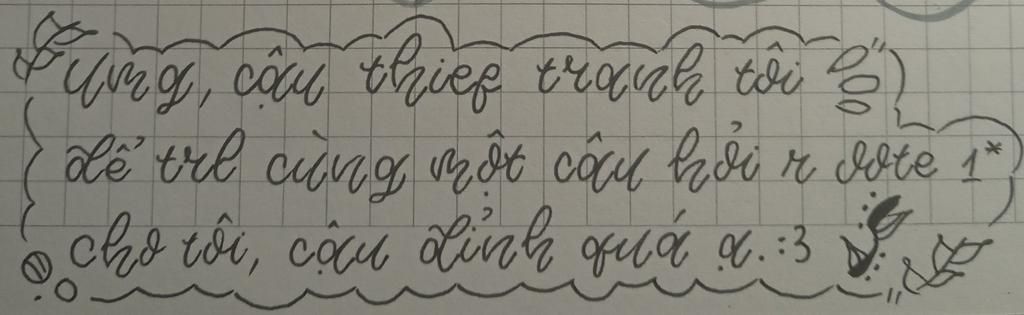 Ưng, cậu thief tranh tôi
để trl cùng một câu hỏi r vote 1*
cho tôi, cậu đỉnh quá ạ. :3